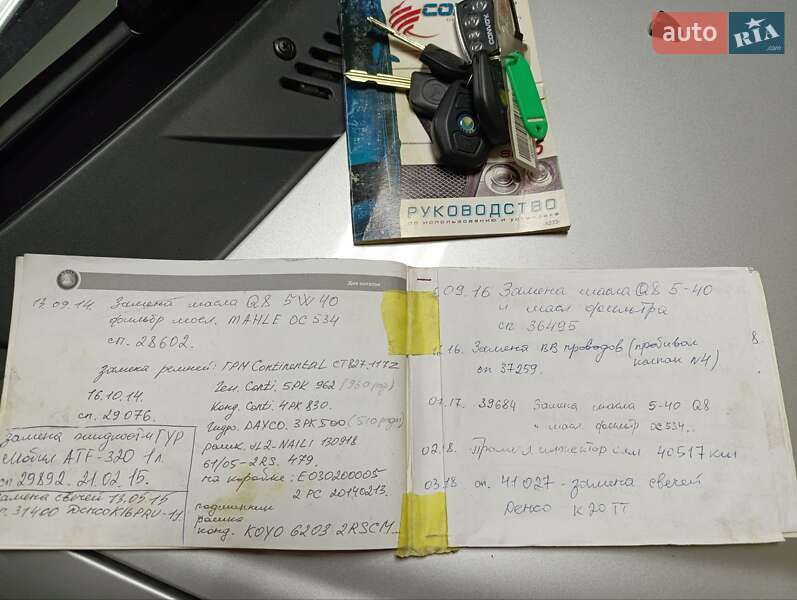 auto RIA .com
CONVOY
РУКОВОДСТВО
по использованию и установке
Для нотаток
13.09.14. Замена масла Q8 5W40
фильтр мосл. MAHLE OC 534
сп. 28602.
замена ремней: ГРМ Continental CT827.117Z
16.10.14.
сп. 29076.
Ген. Conti. 5PK 962
Конд. Conti. 4PK 830.
Гидро. DAYCO. 3PK500
ролик
61/05-2RS. 479.
на коробке: E030200005
2 PC 20140213.
подшипник
ролика
конд. KOYO 6203 2RSCM
Замена жидкости ГУР
Мобил ATF-320 1л
сп 29892. 21.02.15.
Замена свечей 13.05.15
31400 Денсо K16PRU-11.
09.16 Замена масла Q8 5-40
и масл фильтра
сп 36495
16. Замена ВВ проводов (пробивал
сп 37259. колпак N4)
07.17. 39684 Замена масла 5-40 Q8
масл фильтр OC534.
02.18. инжектор 40517 км
03.18 сп. 41027 - замена свечей
Денсо K20TT